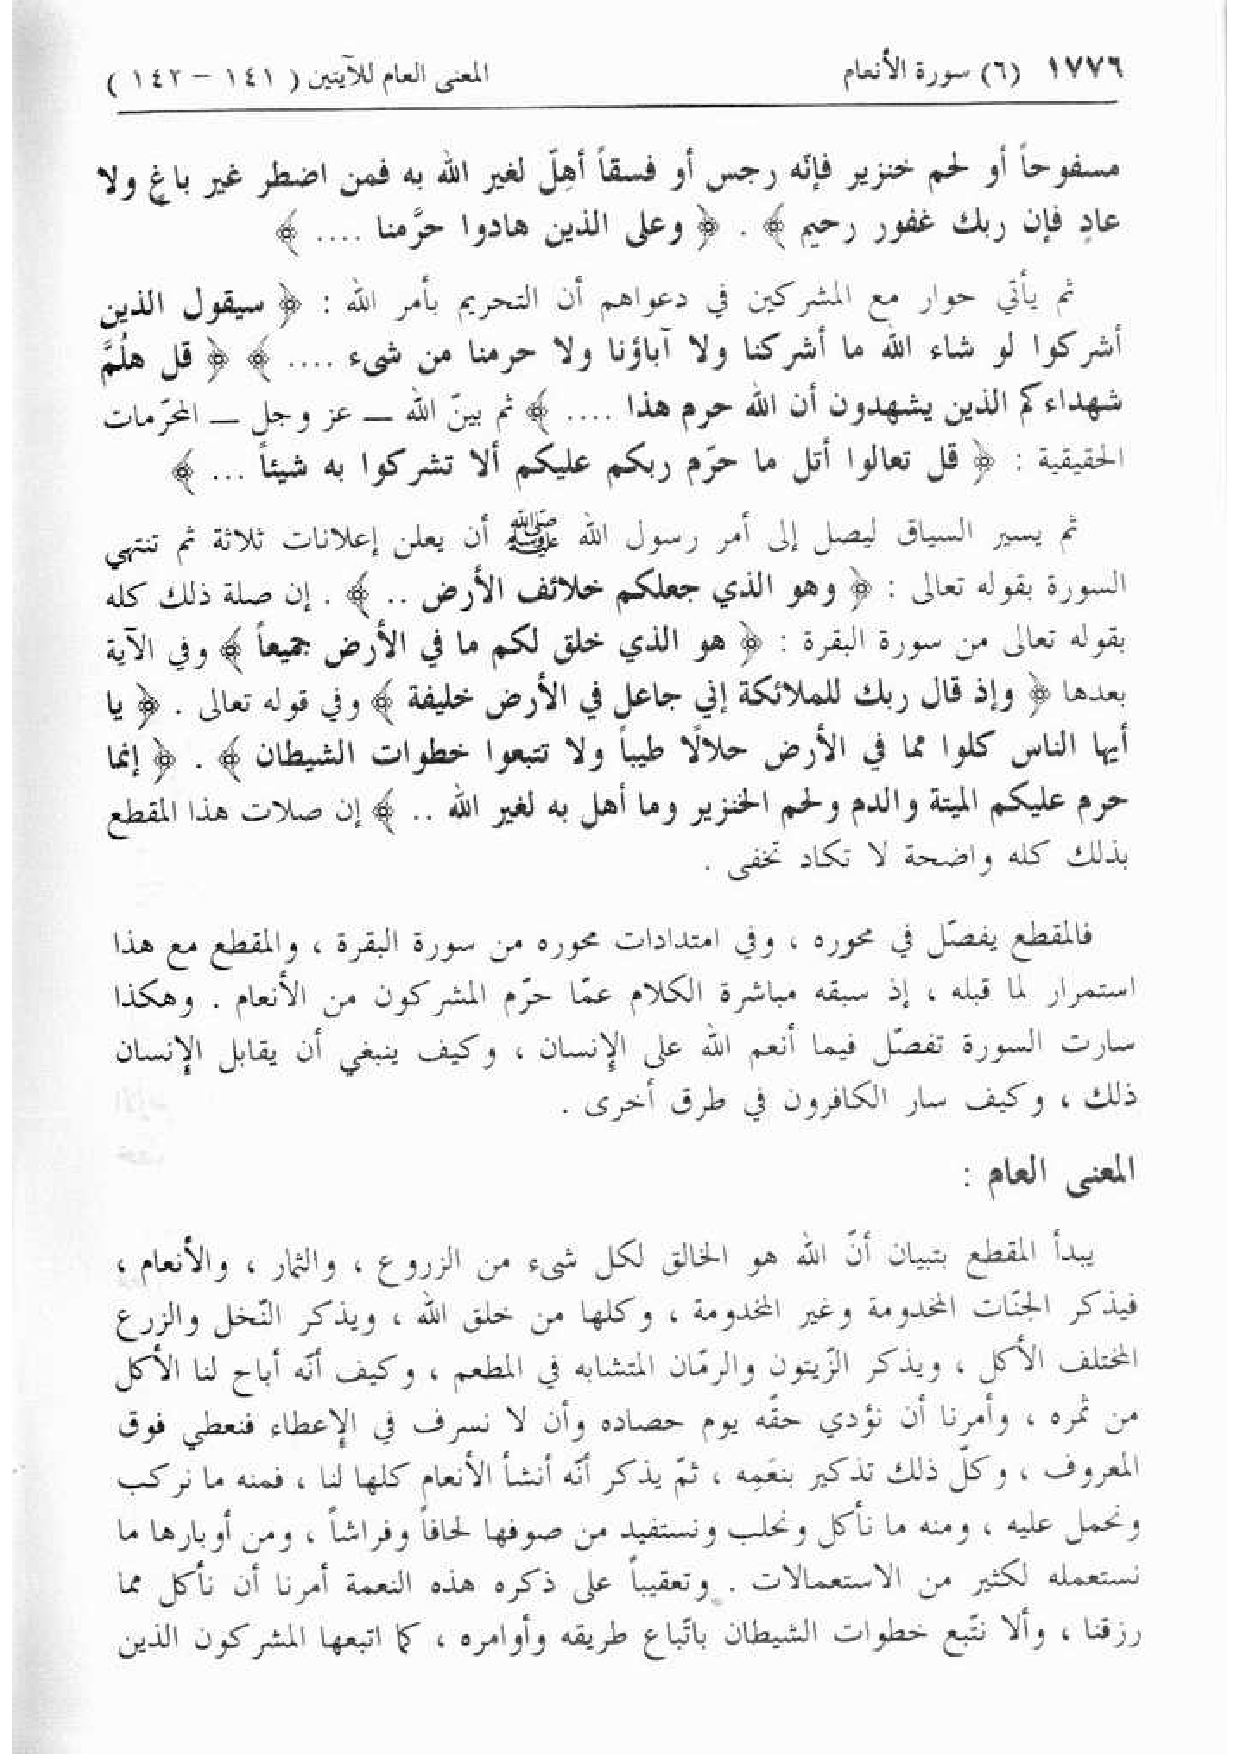 ١٧٧٦ (٦) سورة الأنعام المعنى العام للآيتين ( ١٤١ – ١٤٢ )
مسفوحاً أو لحم خنزير فإنّه رجس أو فسقاً أُهِلّ لغير الله به فمن اضطر غير باغٍ ولا
عادٍ فإن ربك غفور رحيم ﴾ . ﴿ وعلى الذين هادوا حرَّمنا .... ﴾
ثم يأتي حوار مع المشركين في دعواهم أن التحريم بأمر الله : ﴿ سيقول الذين
أشركوا لو شاء الله ما أشركنا ولا آباؤنا ولا حرمنا من شيء .... ﴾ ﴿ قل هلُمَّ
شهداءكم الذين يشهدون أن الله حرم هذا .... ﴾ ثم بيّن الله ــ عز وجل ــ المحرّمات
الحقيقية : ﴿ قل تعالوا أتل ما حرّم ربكم عليكم ألا تشركوا به شيئاً ... ﴾
ثم يسير السياق ليصل إلى أمر رسول الله ﷺ أن يعلن إعلانات ثلاثة ثم تنتهي
السورة بقوله تعالى : ﴿ وهو الذي جعلكم خلائف الأرض .. ﴾ . إن صلة ذلك كله
بقوله تعالى من سورة البقرة : ﴿ هو الذي خلق لكم ما في الأرض جميعاً ﴾ وفي الآية
بعدها ﴿ وإذ قال ربك للملائكة إني جاعل في الأرض خليفة ﴾ وفي قوله تعالى . ﴿ يا
أيها الناس كلوا مما في الأرض حلالًا طيباً ولا تتبعوا خطوات الشيطان ﴾ . ﴿ إنما
حرم عليكم الميتة والدم ولحم الخنزير وما أهل به لغير الله .. ﴾ إن صلات هذا المقطع
بذلك كله واضحة لا تكاد تخفى .
فالمقطع يفصّل في محوره ، وفي امتدادات محوره من سورة البقرة ، والمقطع مع هذا
استمرار لما قبله ، إذ سبقه مباشرة الكلام عمّا حرّم المشركون من الأنعام . وهكذا
سارت السورة تفصّل فيما أنعم الله على الإنسان ، وكيف ينبغي أن يقابل الإنسان
ذلك ، وكيف سار الكافرون في طرق أخرى .
المعنى العام :
يبدأ المقطع بتبيان أنّ الله هو الخالق لكل شيء من الزروع ، والثمار ، والأنعام ،
فيذكر الجنّات المخدومة وغير المخدومة ، وكلها من خلق الله ، ويذكر النّخل والزرع
المختلف الأكل ، ويذكر الزّيتون والرمّان المتشابه في المطعم ، وكيف أنّه أباح لنا الأكل
من ثمره ، وأمرنا أن نؤدي حقّه يوم حصاده وأن لا نسرف في الإعطاء فنعطي فوق
المعروف ، وكلّ ذلك تذكير بنعَمِه ، ثمّ يذكر أنّه أنشأ الأنعام كلها لنا ، فمنه ما نركب
ونحمل عليه ، ومنه ما نأكل ونحلب ونستفيد من صوفها لحافاً وفراشاً ، ومن أوبارها ما
نستعمله لكثير من الاستعمالات . وتعقيباً على ذكره هذه النعمة أمرنا أن نأكل مما
رزقنا ، وألا نتّبع خطوات الشيطان باتّباع طريقه وأوامره ، كما اتبعها المشركون الذين